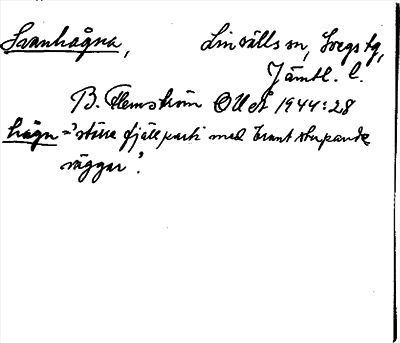 Svanhågna, Linsälls sn, Svegs tg,
Jämtl. l.
B. Flemström OUÅ 1944:28
hågn = 'större fjällparti med brant stupande
väggar'.